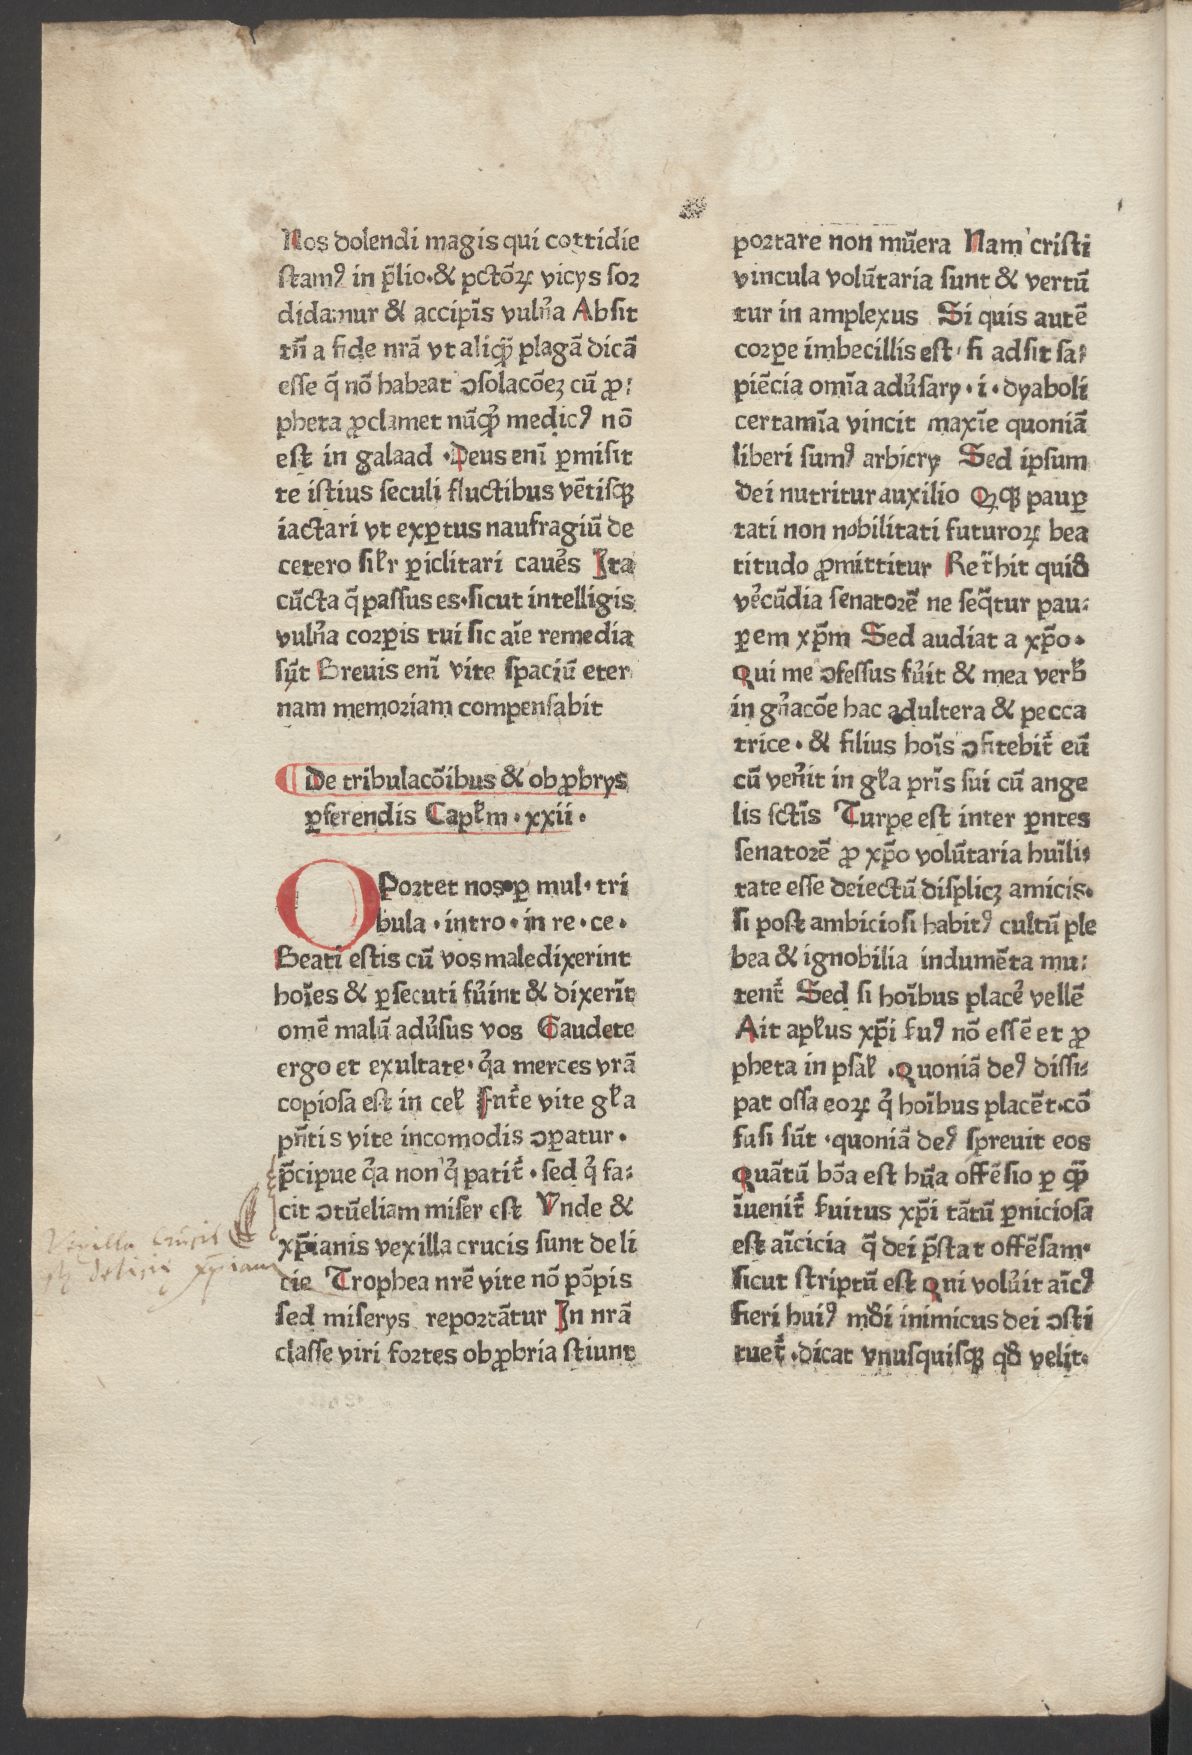 Nos dolendi magis qui cottidie
stamꝰ in p̄lio·& pctōꝝ vicys sor
didamur & accipīs vulńa Absit
tn̄ a fide nrā vt aliqꝫ plagā dicā
esse q̄ nō habeat ɔsolacōeꝫ cū ꝓ:
pheta ꝓclamet nūqꝫ medicꝰ nō
est in galaad ·Deus enī ꝑmisit
te istius seculi fluctibus vētisqꝫ
iactari vt exꝑtus naufragiū de
cetero silr ꝑiclitari caués Ita
cūcta q̄ passus es·sicut intelligis
vulńa corꝑis tui sic aīe remedia
sūt Breuis enī vite spaciū eter
nam memoriam compensabit
De tribulacōibus & obꝓbrys
ꝑferendis Capłm·xxii·
OPortet nos·ꝑ mul·tri
bula·intro·in re·ce·
Beati estis cū vos maledixerint
hoīes & ꝑsecuti fu̓int & dixerīt
omē malū adu̓sus vos Gaudete
ergo et exultate·q̓a merces vrā
copiosa est in cel Int̄e vite głia
pn̄tis vite incomodis ɔꝑatur·
p̄cipue q̓a non q̓ patit̄·sed q̓ fa:
cit ɔtūeliam miser est Vnde &
xp̄ianis vexilla crucis sunt deli
cie Trophea nrē vite nō pōpis
sed miserys reportātur In nrā
classe viri fortes obꝓbria sciunt
Vexilla crucis
deliciæ xp̄ianis
portare non mūera Nam cristi
vincula volūtaria sunt & vertū
tur in amplexus Si quis autē
corꝑe imbecillis est·si adsit sa:
piēcia omīa adu̓sary·i·dyaboli
certamīa vincit maxīe quoniā
liberi sumꝰ arbitry Sed ipsum
dei nutritur auxilio Qꝫqꝫ pauꝑ
tati non nobilitati futuroꝝ bea
titudo ꝓmittitur Ret̄hit quid
ve̓cūdia senatorē ne seq̄tur pau:
ꝑem xp̄m Sed audiat a xp̄o·
Qui me ɔfessus fu̓it & mea verb
in gn̓acōe hac adultera & pecca
trice·& filius hoīs ɔfitebit̄ eū
cū ven̓it in głia pr̄is sui cū ange
lis sctīs Turpe est inter ꝑntes
senatorē ꝓ xp̄o volūtaria huīli:
tate esse deiectū displicꝫ amicis·
si post ambiciosi habitꝰ cultū ple
bea & ignobilia indumēta mu:
tent̄ Sed si hoībus place̓ vellē
Ait apłus xp̄i suꝰ nō essē et ꝓ
pheta in psal ·Quoniā deꝰ dissi:
pat ossa eoꝝ q̓ hoībus placēt·cō
fusi sūt·quoniā deꝰ spreuit eos
Quātū bōa est hūa offēsio ꝑ qꝫ
īuenit̄ suitus xp̄i tātū ꝑniciosa
est aīcicia q̄ dei p̄stat offēsam·
sicut scriptū est Qui volu̓it aīcꝰ
fieri huiꝰ mdi inimicus dei ɔsti
tuet̄·dicat vnusquisqꝫ qd velit·